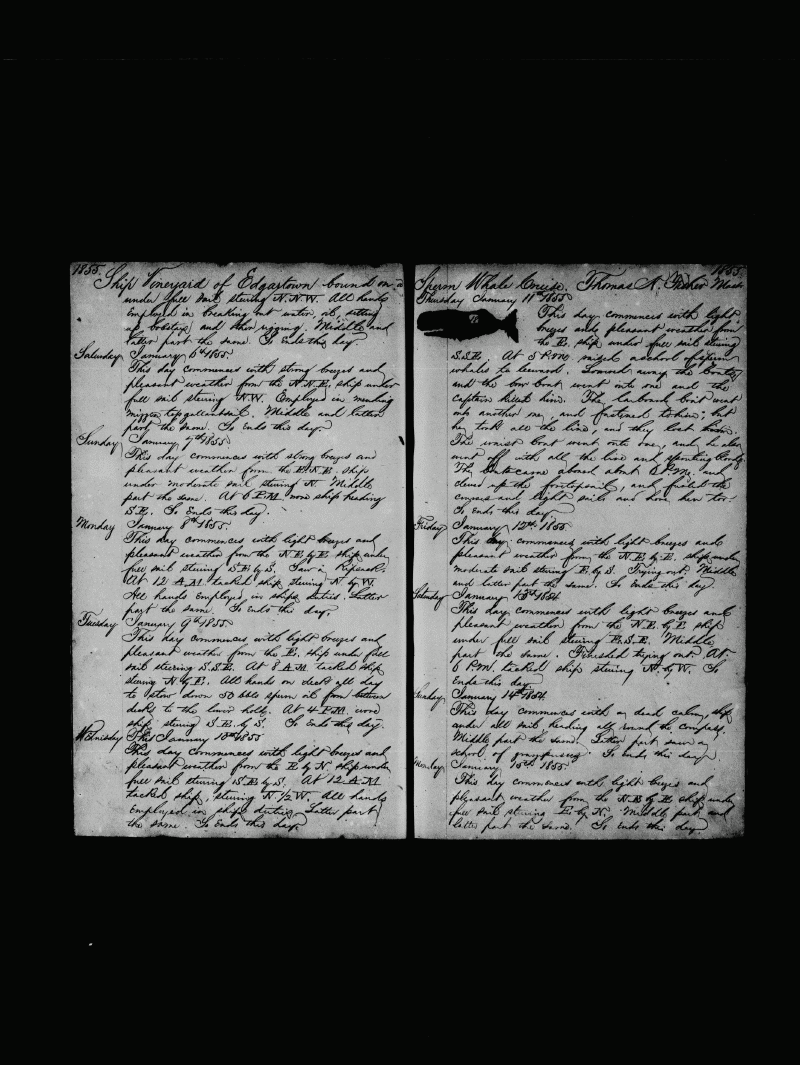 1855.
Ship Vineyard of Edgartown bound on a
under full sail stering N.N.W. All hands
employed in breaking out water, oil, setting
up bobstays and other rigging. Middle and
latter part the same. So ends this day.
Saturday January 6th 1855.
This day commences with strong breezes and
pleasant weather from the N.N.E. ship under
full sail stering N.W. Employed in making
mizzen topgallantsail. Middle and latter
part the same. So ends this day.
Sunday January 7th 1855.
This day commences with strong breezes and
pleasant weather from the E.N.E. ship
under moderate sail stering N. Middle
part the same. At 6 P.M. wore ship heading
S.E. So Ends this day.
Monday January 8th 1855.
This day commences with light breezes and
pleasant weather from the N.E. by E. ship under
full sail stering S.E. by S. Saw a
At 12 A.M. tacked ship, stering N by W.
All hands employed in ships duties. Latter
part the same. So ends this day.
Tuesday January 9th 1855.
This day commences with light breezes and
pleasant weather from the E. ship under full
sail steering S.S.E. At 8 A.M. tacked ship
stering N by E. All hands on deck all day
to stow down 50 bbls sperm oil from between
decks to the lower hold. At 4 P.M. wore
ship stering S.E. by S. So Ends this day.
Wednesday This January 10th 1855
This day commences with light breezes and
pleasant weather from the E by N. ship under
full sail stering S.E by S. At 12 A.M.
tacked ship, stering N. 1/2 W. All hands
employed in ships duties. Latter part
the same. So Ends this day.
1855.
Sperm Whale Cruise. Thomas N. Fisher Mast
Thursday January 11th 1855.
This day commences with light
breezes and pleasant weather from
the E. ship under full sail stering
S.S.E. At 5 P.M. raised a school of sperm
whales to leeward. Lowered away the boats
and the bow boat went onto one and the
captain killed him. The larboard boat went
onto another one, and fastened to him; but
he took all the line, and they lost him.
The waist boat went onto one, and he also
went off with all the line and spouting
The boats came aboard about 6 P.M. and
clewed up the foretopsail, and furled the
courses and light sails and hove her to.
So ends this day.
Friday January 12th 1855.
This day commences with light breezes and
pleasant weather from the N.E. by E. ship under
moderate sail stering E. by S. Trying out. Middle
and latter part the same. So ends this day.
Saturday January 13th 1854.
This day commences with light breezes and
pleasant weather from the N.E. by E ship
under full sail stering E.S.E. Middle
part the same. Finished trying out. At
6 P.M. tacked ship stering N. by W. So
Ends this day.
Sunday January 14th 1854.
This day commences with a dead calm, ship
under all sail heading all round the compass.
Middle part the same. Latter part saw a
school of So ends this day
Monday January 15th 1855.
This day commences with light breezes and
pleasant weather from the N.E by E ship under
full sail stering E by N. Middle part and
latter part the same. So ends this day